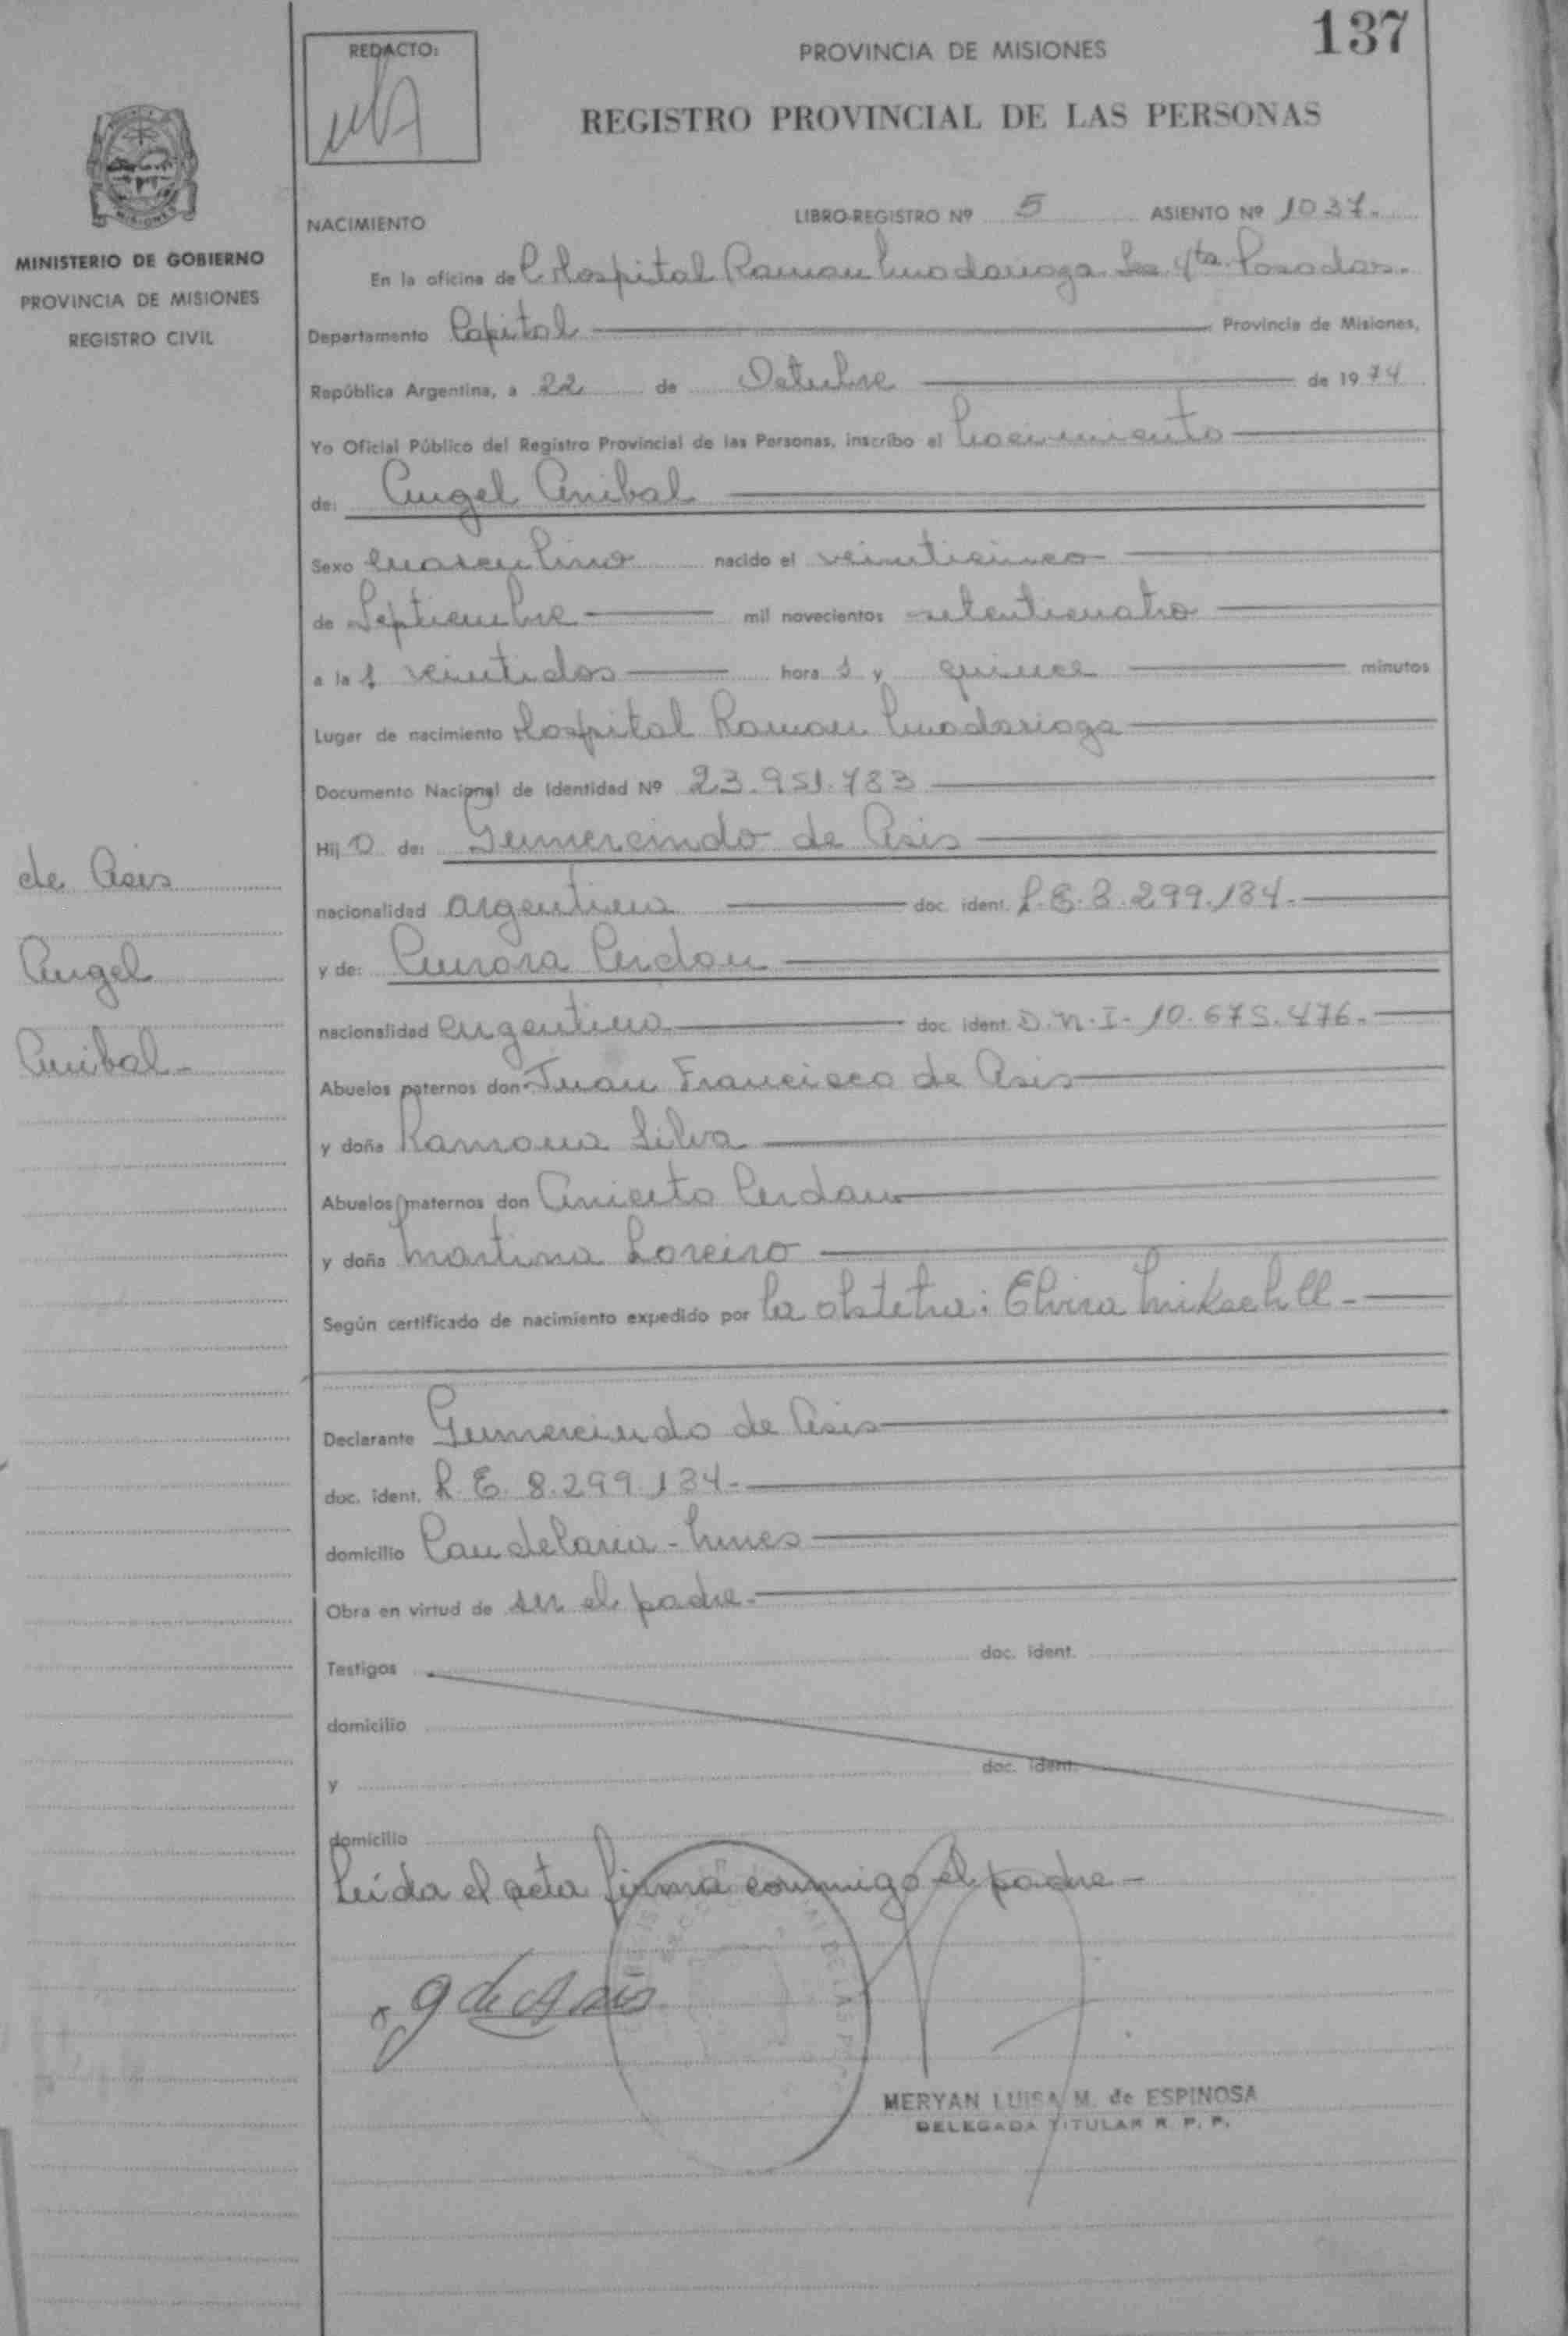 137
REDACTO:
PROVINCIA DE MISIONES
REGISTRO PROVINCIAL DE LAS PERSONAS
MISIONES
MINISTERIO DE GOBIERNO
PROVINCIA DE MISIONES
REGISTRO CIVIL
NACIMIENTO LIBRO-REGISTRO Nº 5 ASIENTO Nº 1037.
En la oficina de Hospital Ramon Madariaga 4ta Posadas.
Departamento Capital Provincia de Misiones,
República Argentina, a 22 de Octubre de 1974
Yo Oficial Público del Registro Provincial de las Personas, inscribo el Nacimiento
de: Angel Anibal
Sexo masculino nacido el veinticinco
de Septiembre mil novecientos setenticuatro
a las veintidos horas y quince minutos
Lugar de nacimiento Hospital Ramon Madariaga
Documento Nacional de Identidad Nº 23.951.783
Hijo de: Gumercindo de Asis
nacionalidad argentina doc. ident. L.E. 8.299.134.
y de: Aurora Cerdan
nacionalidad argentina doc. ident. D.N.I. 10.675.476.
Abuelos paternos don Juan Francisco de Asis
y doña Ramona Silva
Abuelos maternos don Aniceto Cerdan
y doña Martina Loreiro
Según certificado de nacimiento expedido por la obstetra: Elvira
Declarante Gumercindo de Asis
doc. ident. L.E. 8.299.134-
domicilio Candelaria - Mnes
Obra en virtud de ser el padre.
Testigos doc. ident.
domicilio
y doc. ident.
domicilio
Leída el acta firma conmigo el padre-
g de Asis
MERYAN LUISA M. de ESPINOSA
DELEGADA TITULAR R. P. P.
de Asis
Angel
Anibal-